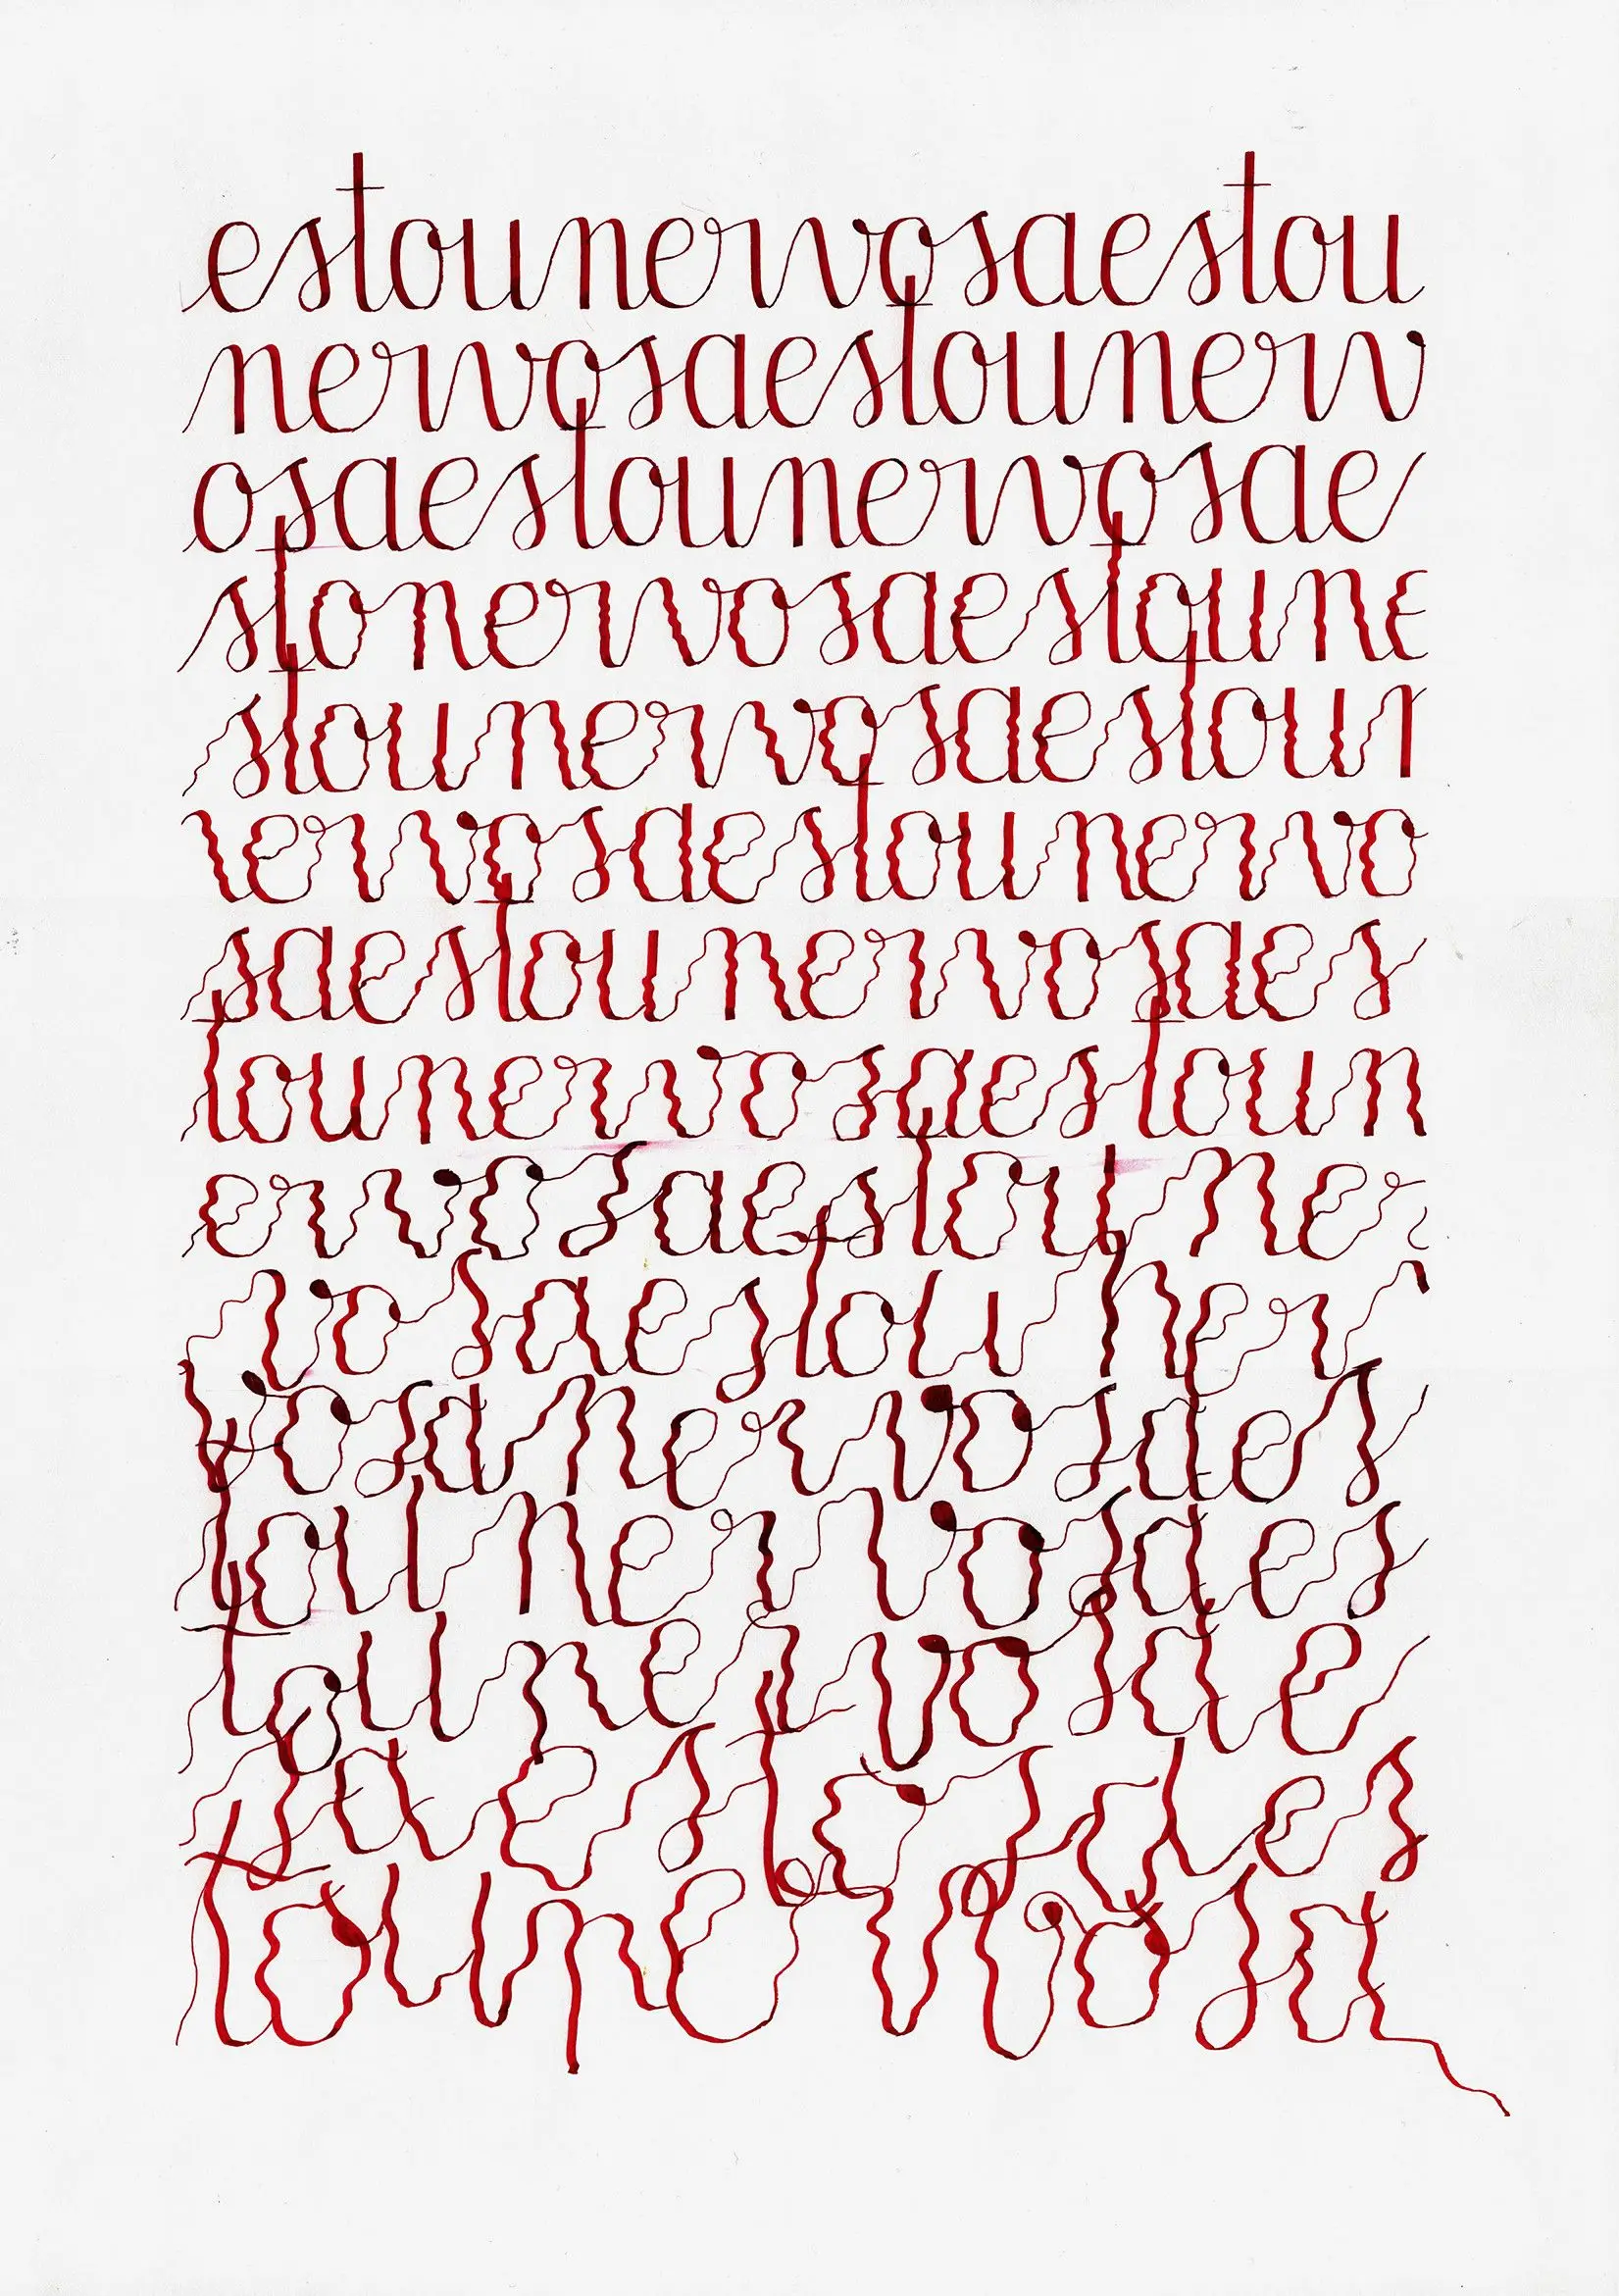 estounervosaestou
nervosaestounerv
osaestounervosae
stonervosaestoune
stounervosaestoun
ervosaestounervo
saestounervosaes
tounervosaestoun
ervosaestouner
vosaestouner
vosanervosaes
tounervosaes
tounervosae
saestosaes
tounervosa